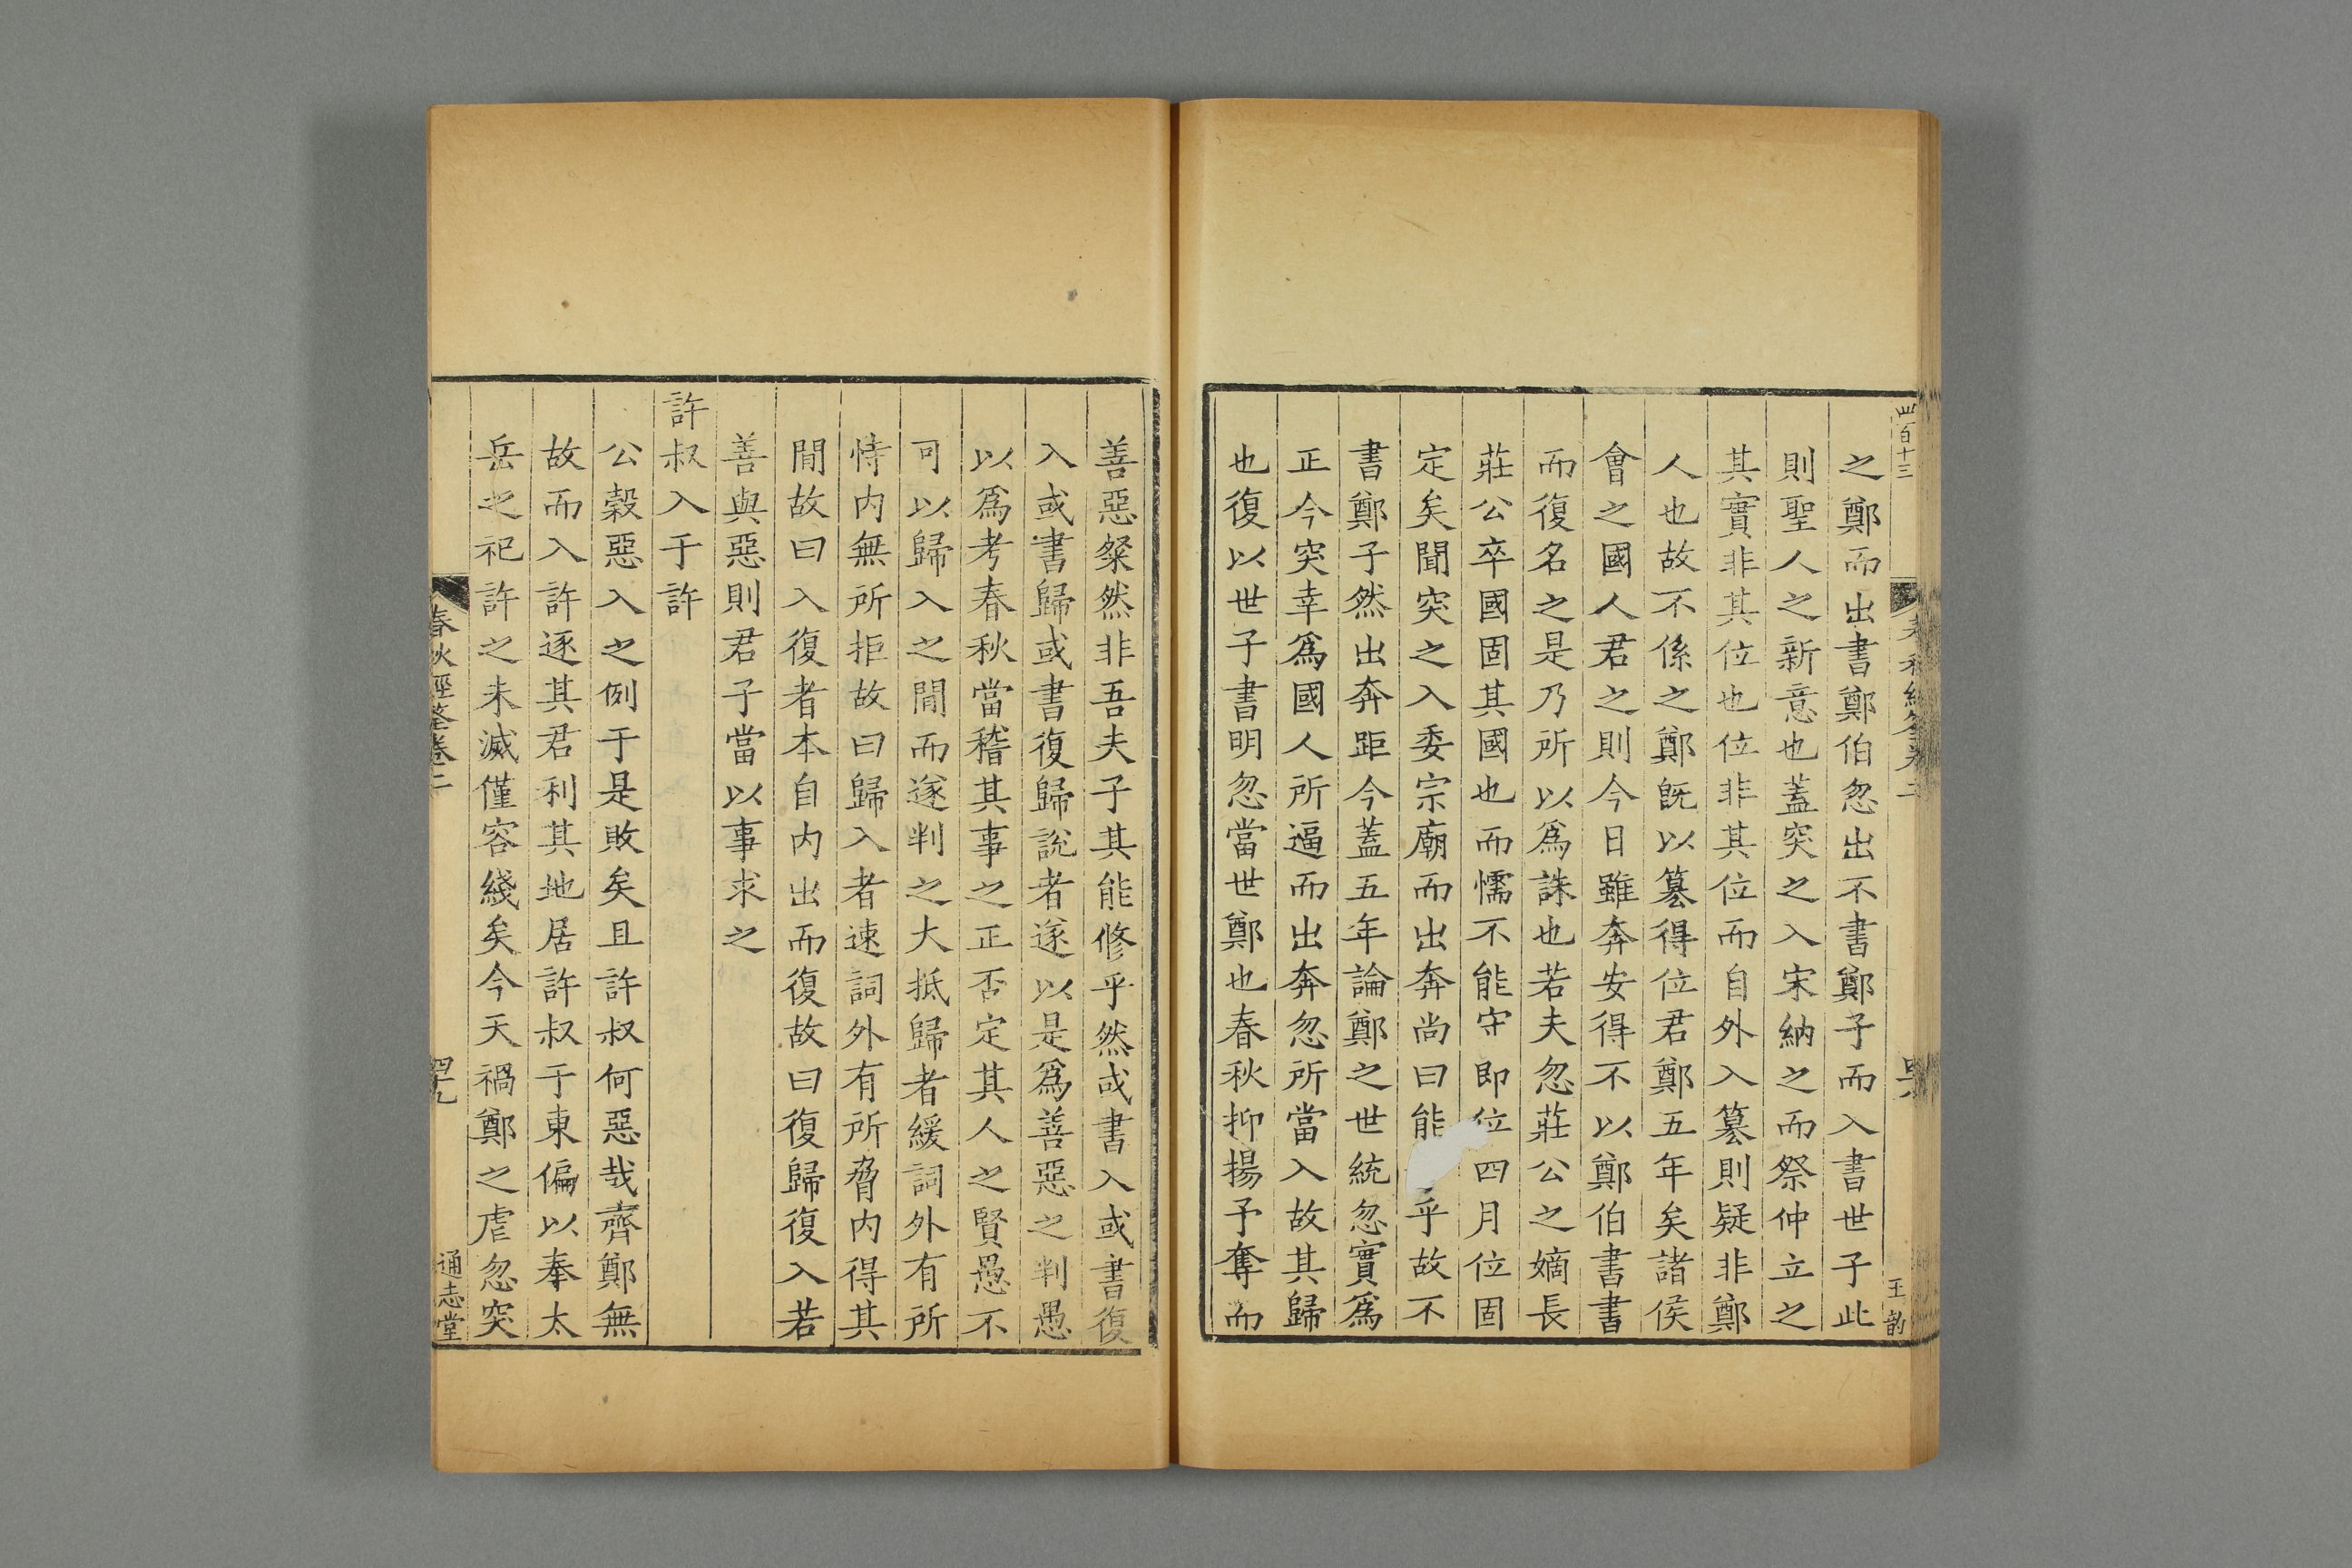 之鄭而出書鄭伯忽出不書鄭子而入書世子此
則聖人之新意也蓋突之入宋納之而祭仲立之
其實非其位也位非其位而自外入篡則疑非鄭
人也故不係之鄭旣以篡得位君鄭五年矣諸侯
會之國人君之則今日雖奔安得不以鄭伯書書
而復名之是乃所以爲誅也若夫忽莊公之嫡長
莊公卒國固其國也而懦不能守即位四月位固
定矣聞突之入委宗廟而出奔尚曰能乎故不
書鄭子然出奔距今蓋五年論鄭之世統忽實爲
正今突幸爲國人所逼而出奔忽所當入故其歸
也復以世子書明忽當世鄭也春秋抑揚予奪而
善惡粲然非吾夫子其能修乎然或書入或書復
入或書歸或書復歸說者遂以是爲善惡之判愚
以爲考春秋當稽其事之正否定其人之賢愚不
可以歸入之閒而遂判之大抵歸者緩詞外有所
恃内無所拒故曰歸入者速詞外有所脅内得其
閒故曰入復者本自内出而復故曰復歸復入若
善與惡則君子當以事求之
許叔入于許
公穀惡入之例于是敗矣且許叔何惡哉齊鄭無
故而入許逐其君利其地居許叔于東偏以奉太
岳之祀許之未滅僅容綫矣今天禍鄭之虐忽突
春秋經筌卷二
四十九
通志堂